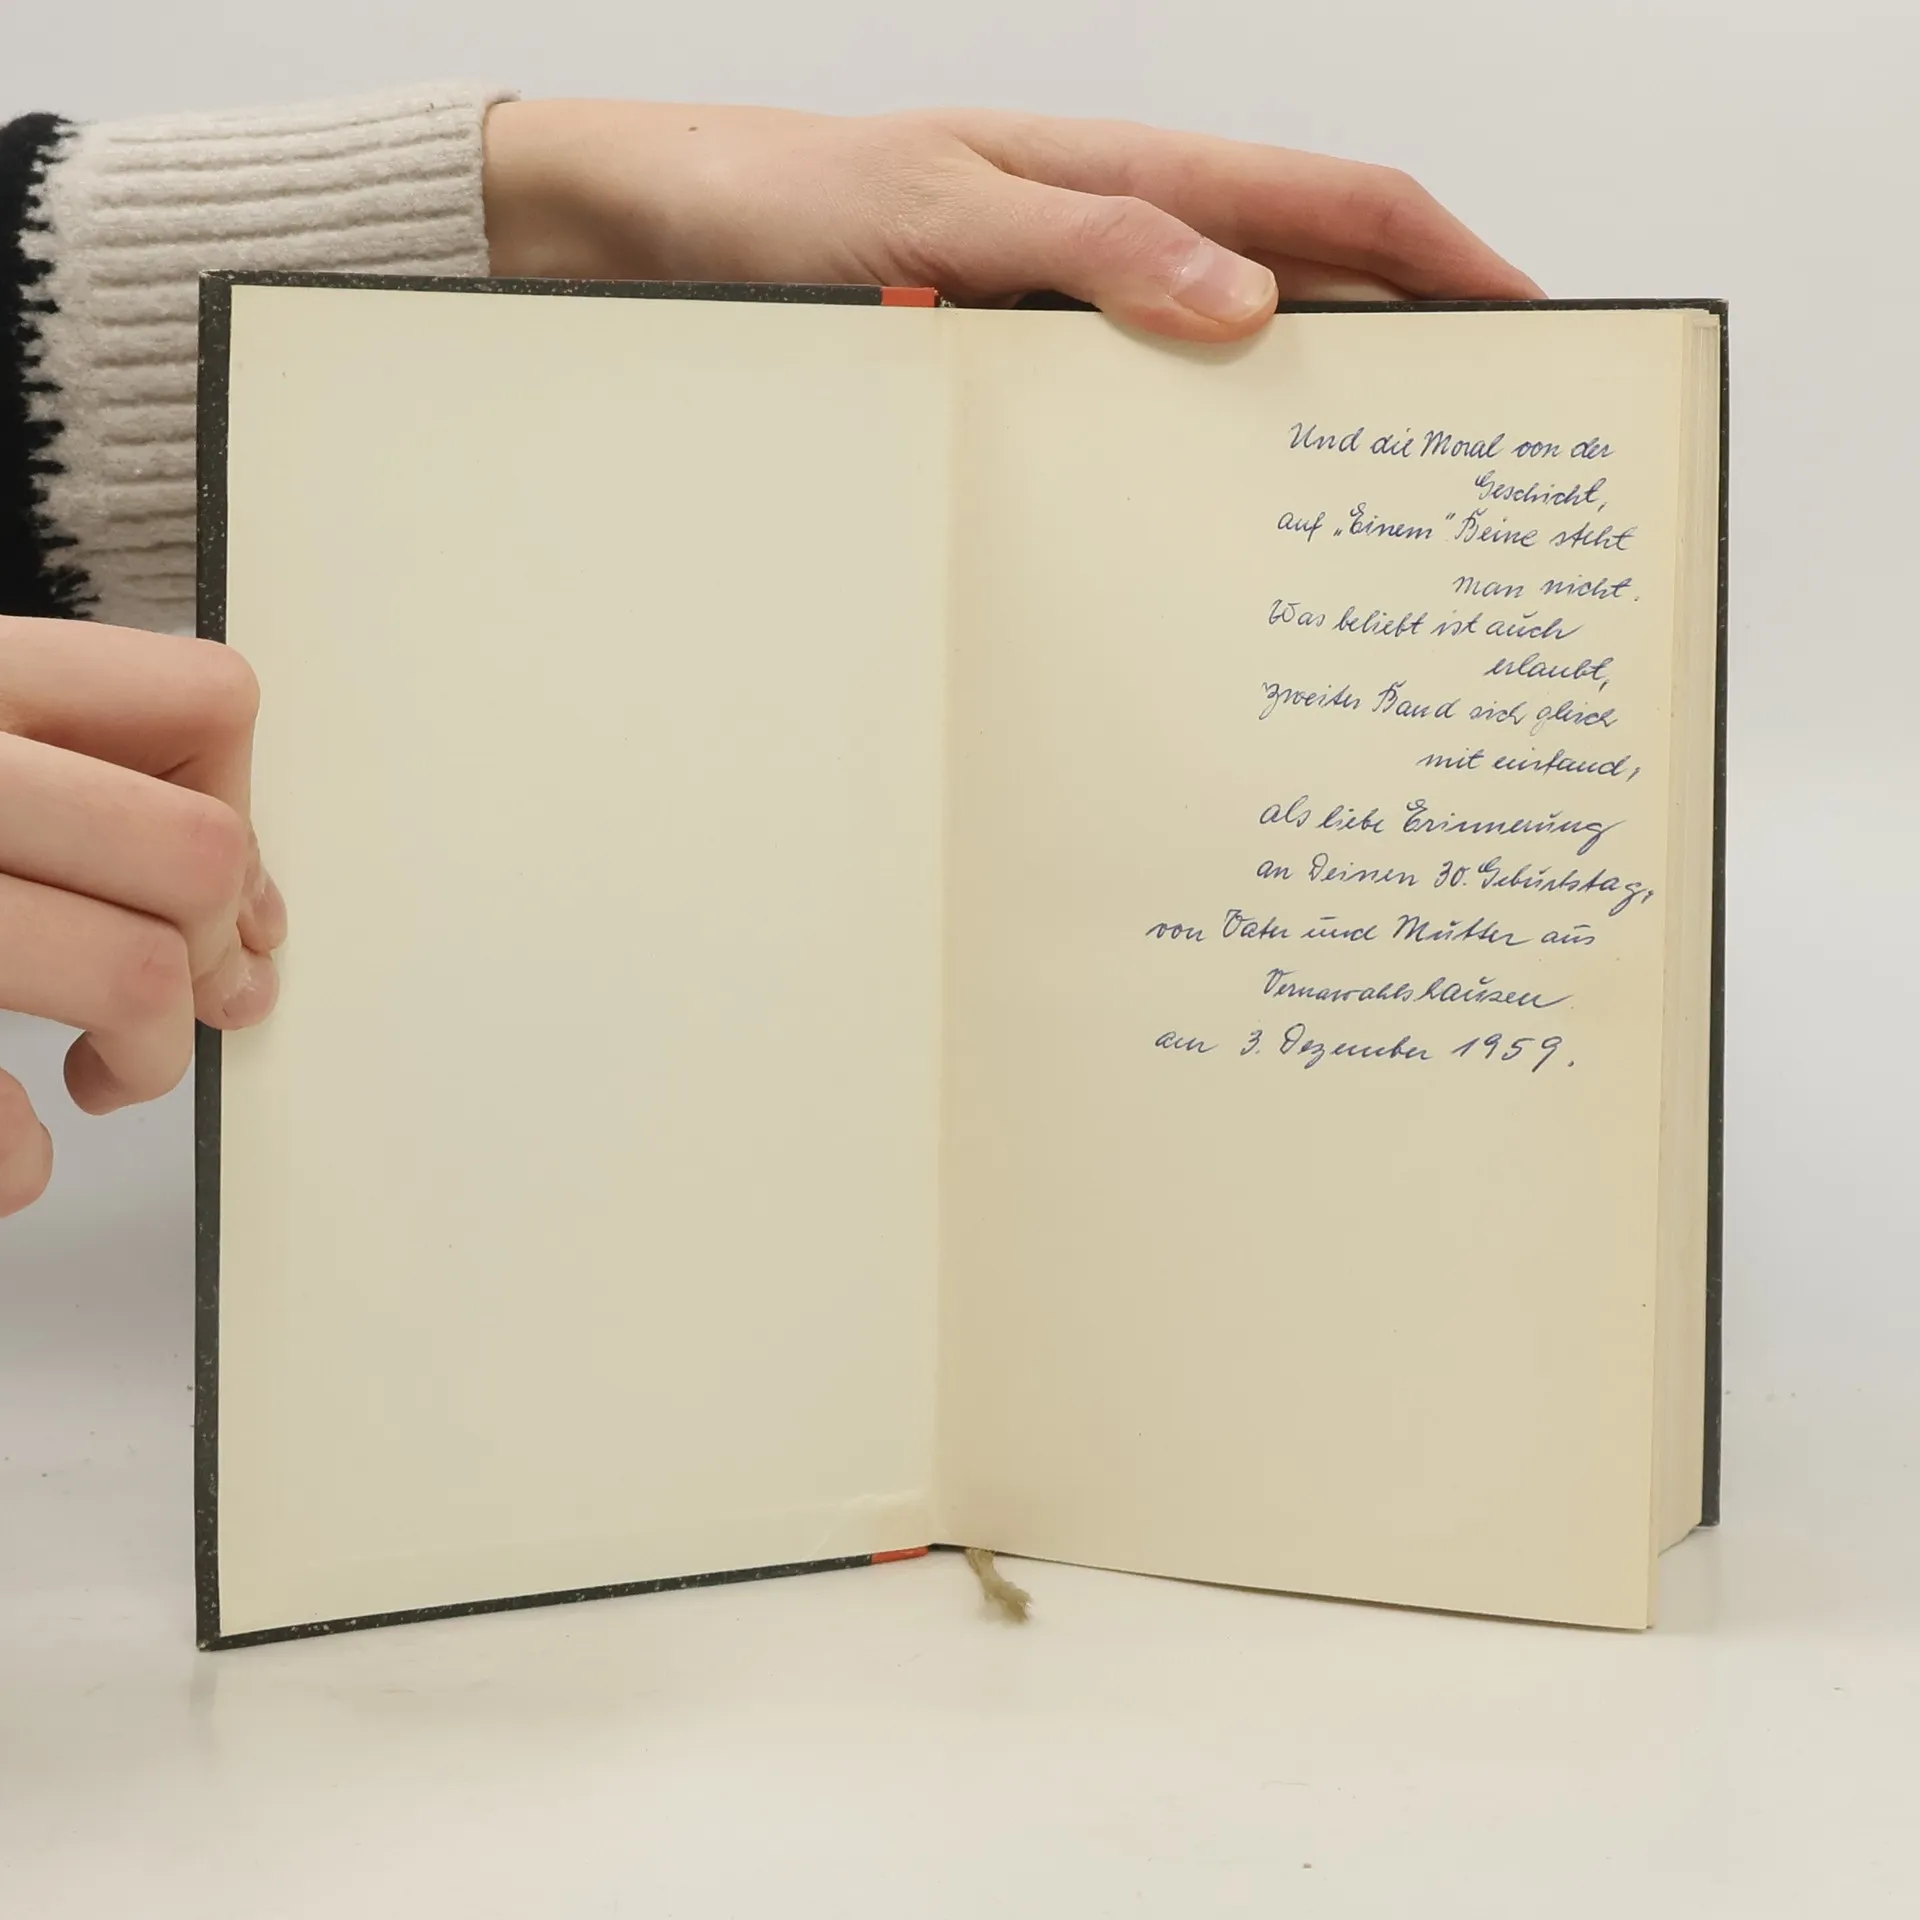 Und die Moral von der
Geschicht,
auf „Einem" Beine steht
man nicht.
Was beliebt ist auch
erlaubt,
zweiter Band sich gleich
mit einfand,
als liebe Erinnerung
an Deinen 30. Geburtstag,
von Vater und Mutter aus
Vernawahlshausen
am 3. Dezember 1959.